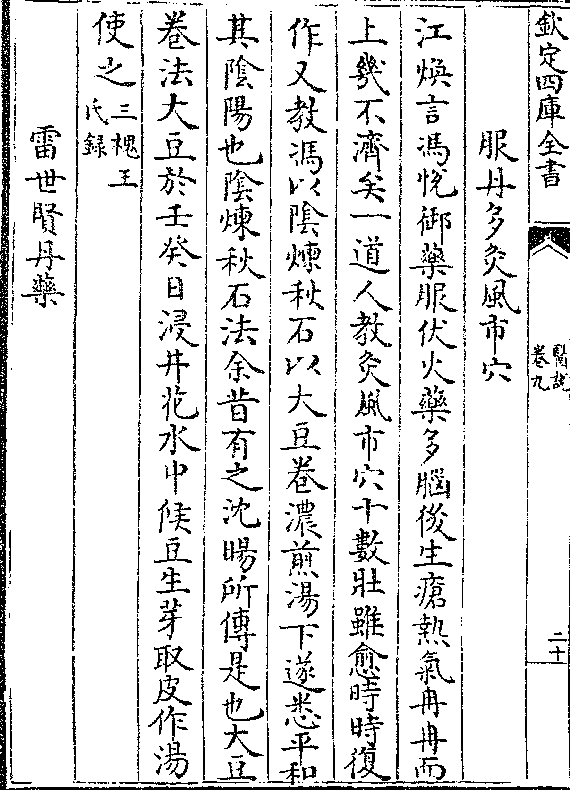 欽定四庫全書
醫說
卷九
二十
服丹多灸風市穴
江煥言馮悦御藥服伏火藥多腦後生瘡熱氣冉冉而
上幾不濟矣一道人教灸風市穴十數壯雖愈時時復
作又教馮以陰煉秋石以大豆卷濃煎湯下遂悉平和
其陰陽也陰煉秋石法余昔有之沈暘所傳是也大豆
卷法大豆於壬癸日浸井花水中候豆生芽取皮作湯
使之三槐王
氏録
雷世賢丹藥